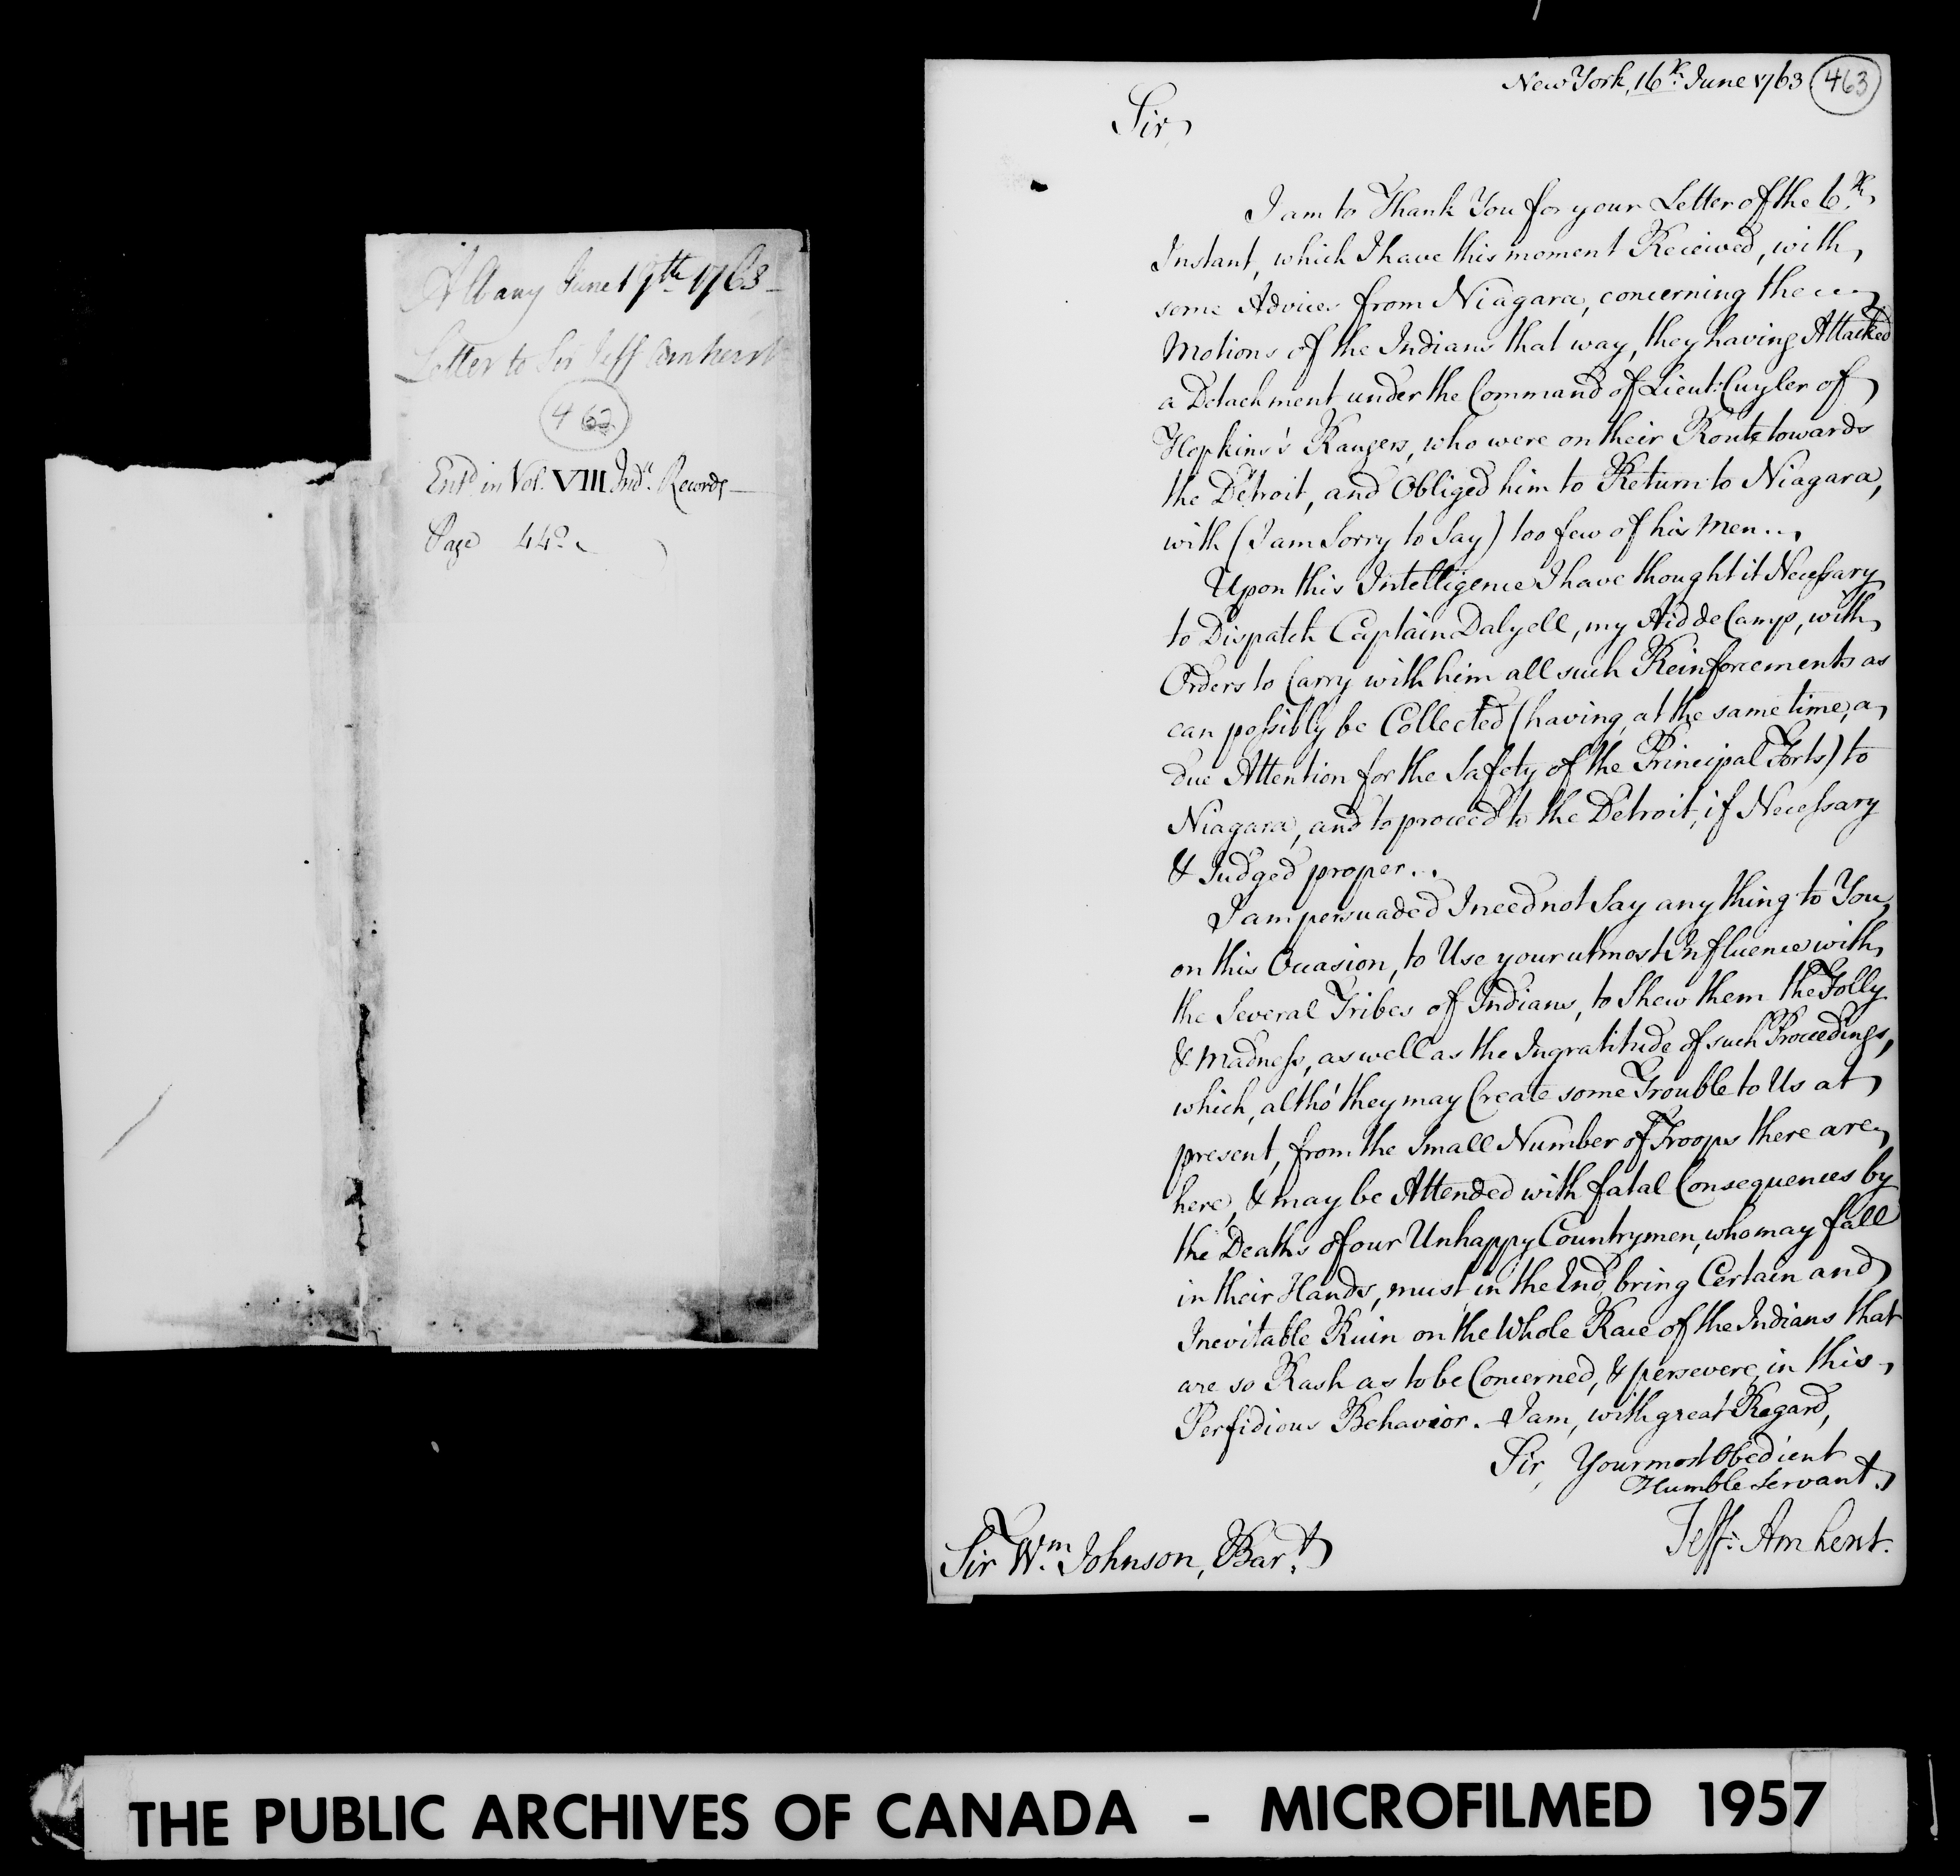 Albany June 19th 1763
Letter to Sir Jeff Amherst
462
Entd. in Vol. VIII Indn. Records
Page 442
New York, 16th. June 1763. 463
Sir,
I am to Thank You for your Letter of the 6th.
Instant, which I have this moment Received, with
some Advices from Niagara, concerning the
Motions of the Indians that way, they having Attacked
a Detachment under the Command of Lieut: Cuyler of
Hopkins's Rangers, who were on their Route towards
the Détroit, and Obliged him to Return to Niagara,
with (I am Sorry to Say) too few of his Men...
Upon this Intelligence I have thought it Necessary
to Dispatch Captain Dalyell, my Aid de Camp, with
Orders to Carry with him all such Reinforcements as
can possibly be Collected (having, at the same time, a
due Attention for the Safety of the Principal Forts) to
Niagara, and to proceed to the Détroit, if Necessary
& Judged proper...
I am persuaded I need not Say any thing to You,
on this Occasion, to Use your utmost Influence with
the Several Tribes of Indians, to Shew them the Folly
& Madness, as well as the Ingratitude of such Proceedings,
which, altho' they may Create some Trouble to Us at
present, from the Small Number of Troops there are
here, & may be Attended with fatal Consequences by
the Deaths of our Unhappy Countrymen, who may fall
in their Hands, must, in the End, bring Certain and
Inevitable Ruin on the Whole Race of the Indians that
are so Rash as to be Concerned, & persevere, in this
Perfidious Behavior. I am, with great Regard,
Sir, Your most Obedient
Humble Servant.
Jeff: Amherst.
Sir Wm. Johnson, Bart.
THE PUBLIC ARCHIVES OF CANADA - MICROFILMED 1957